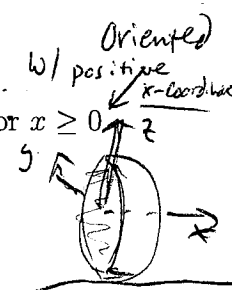 Oriented
w/ positive
x-coordinate
or x ≥ 0
z
y
x